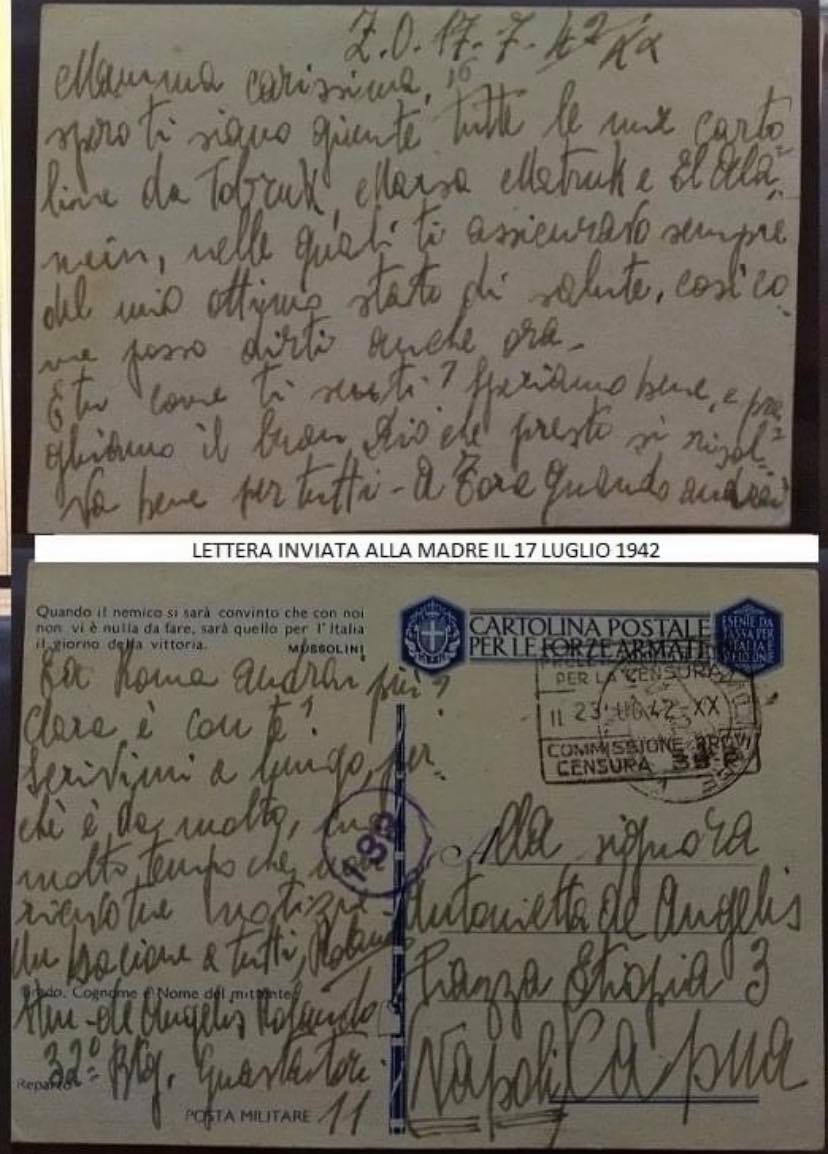 Z.O. 17-7-42 XX
Mamma carissima,
spero ti siano giunte tutte le mie carto
line da Tobruk, Marsa Matruk e El Ala=
mein, nelle quali ti assicuravo sempre
del mio ottimo stato di salute, così co
me posso dirti anche ora.
E tu come ti senti? Speriamo bene, e pre=
ghiamo il buon Dio che presto si risol=
va bene per tutti - A Tora quando andrai?
LETTERA INVIATA ALLA MADRE IL 17 LUGLIO 1942
Quando il nemico si sarà convinto che con noi
non vi è nulla da fare, sarà quello per l'Italia
il giorno della vittoria.
MUSSOLINI
CARTOLINA POSTALE
PER LE FORZE ARMATE
ESENTE DA
TASSA PER
ITALIA E
PER LA CENSURA
II 23 LUG 42-XX
COMMISSIONE PROV
CENSURA 39 R
Roma andrai più?
Clara è con te?
Scrivimi a lungo, per=
chè è da molto,
molto tempo che non
ricevo tue notizie.
Un bacione a tutti, Rolando
Grado, Cognome e Nome del mittente
de Angelis Rolando
32° Btg. Guastatori
Reparto
POSTA MILITARE 11
Alla signora
Antonietta de Angelis
Piazza Etiopia 3
Napoli Capua